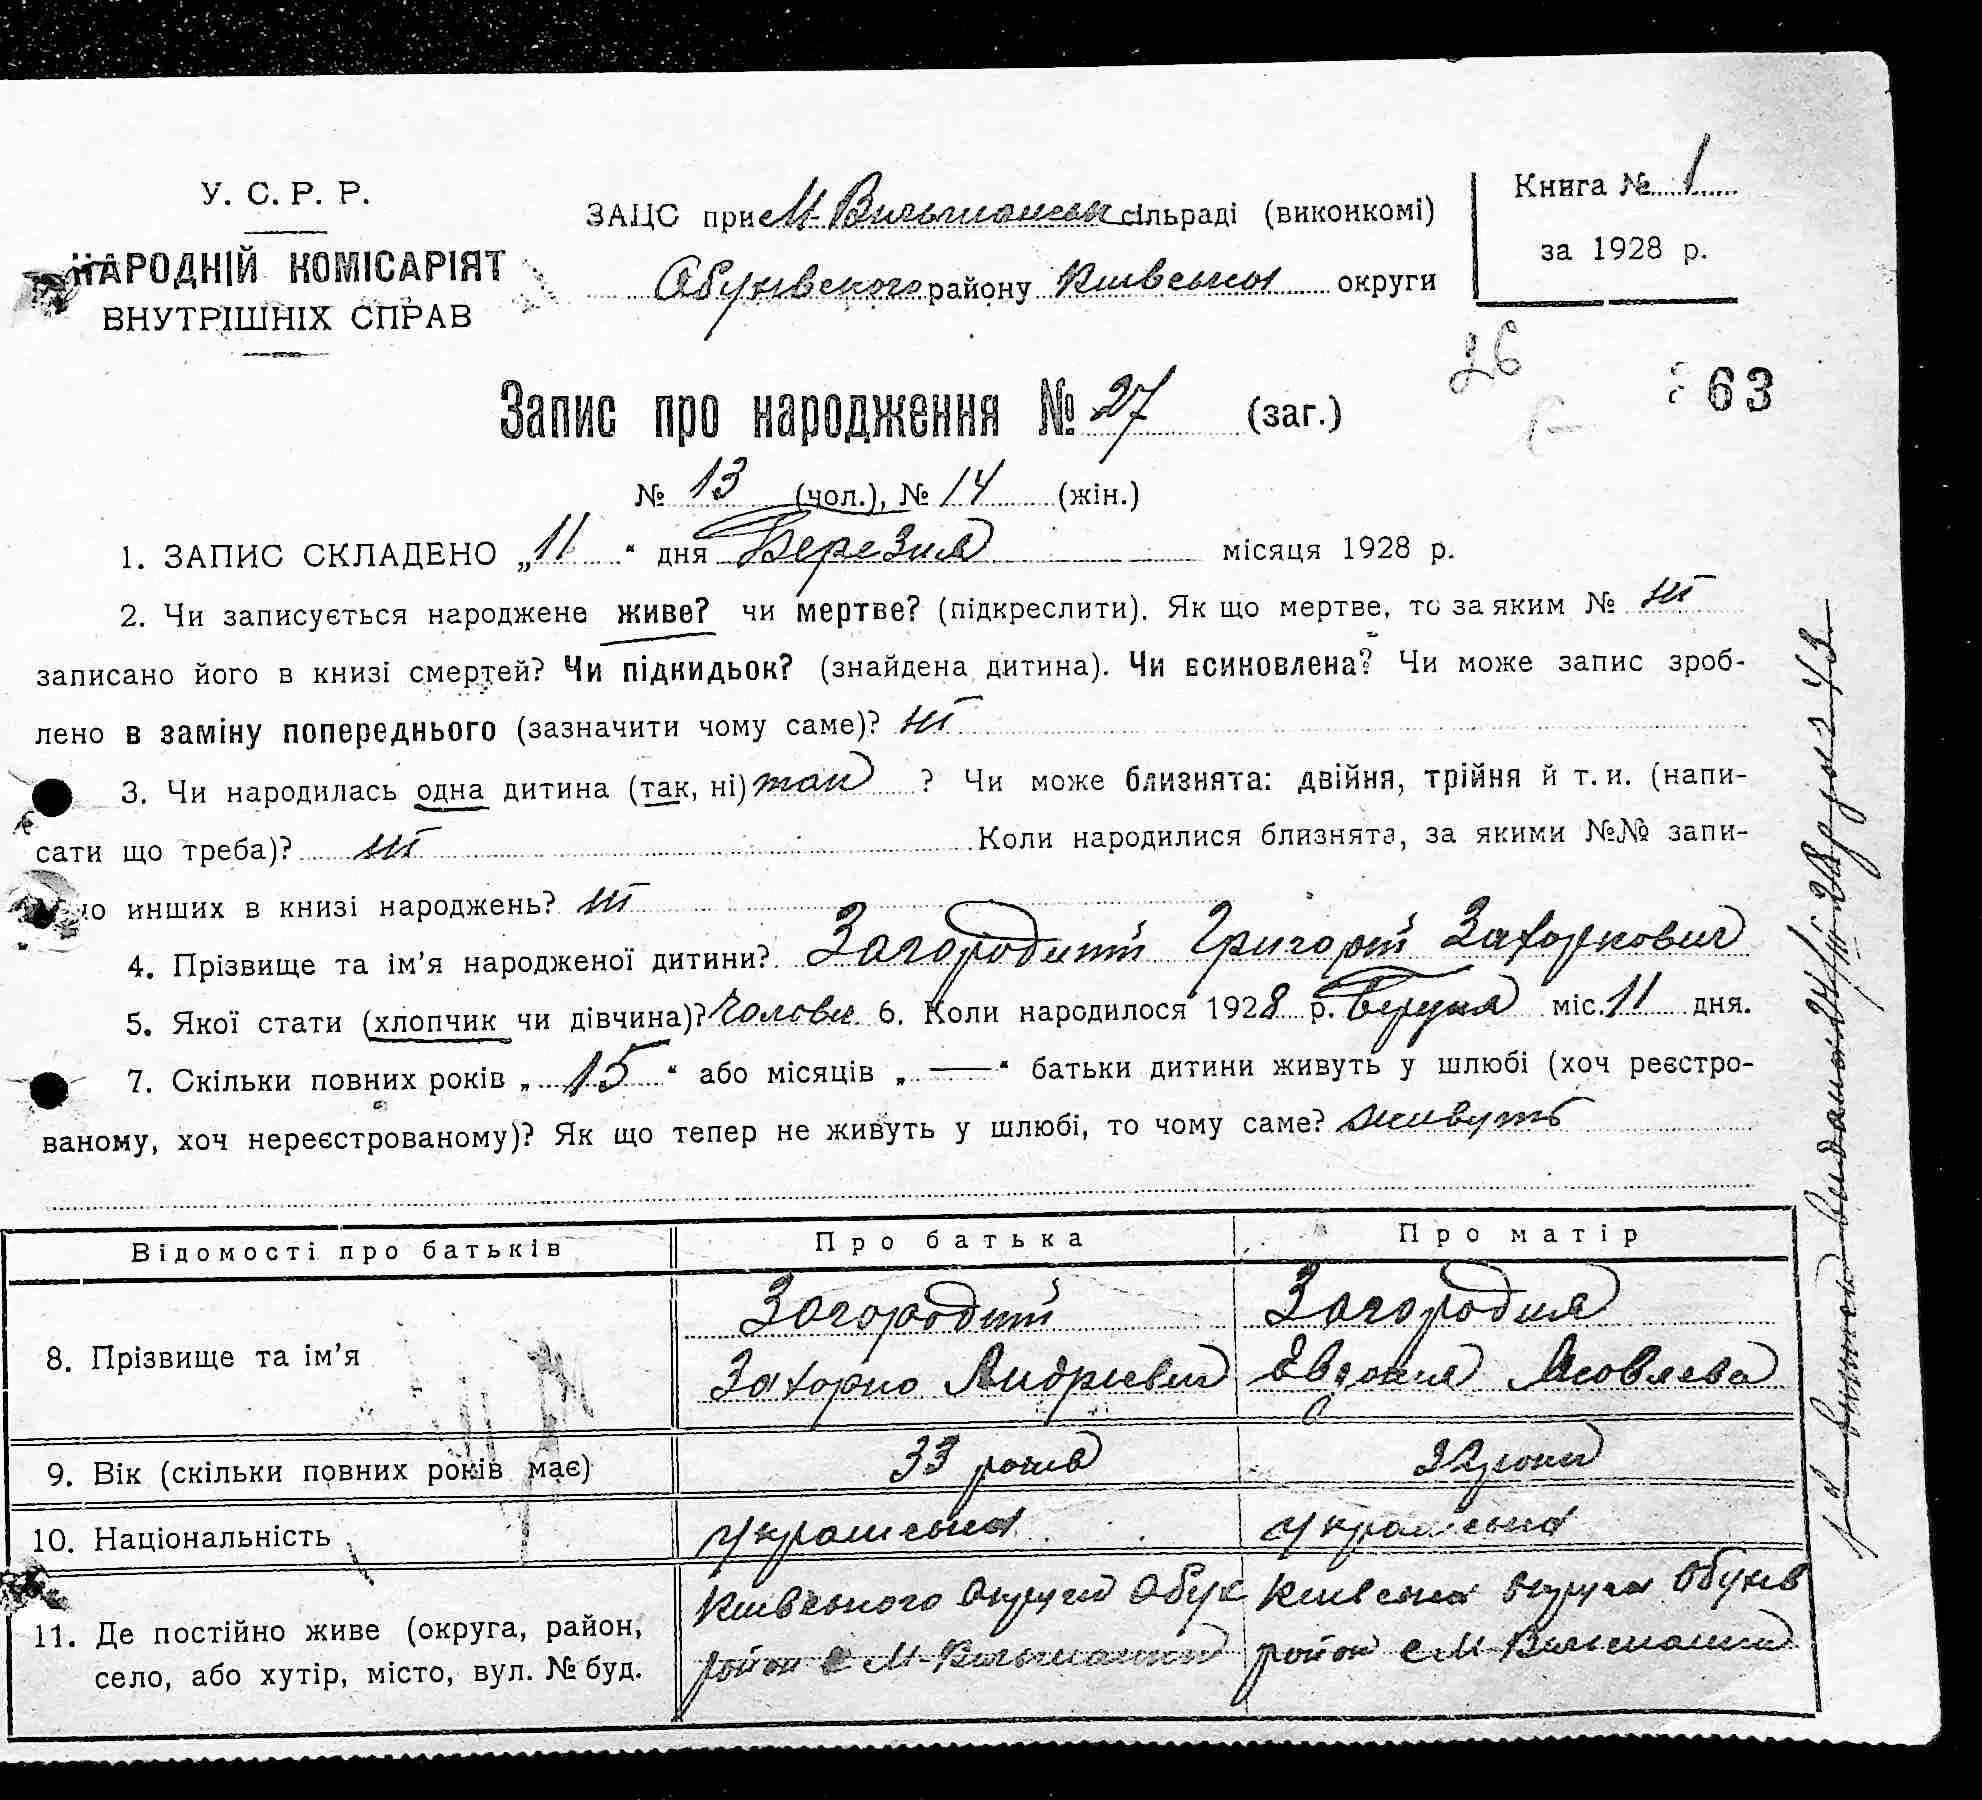 У. С. Р. Р.
НАРОДНІЙ КОМІСАРІЯТ
ВНУТРІШНІХ СПРАВ
ЗАЦС при М-Вильшанськ сільраді (виконкомі)
Обухівского району Київської округи
Книга № 1
за 1928 р.
26
63
Запис про народження № 27 (заг.)
№ 13 (чол.), № 14 (жін.)
1. ЗАПИС СКЛАДЕНО „11“ дня Березня місяця 1928 р.
2. Чи записується народжене живе? чи мертве? (підкреслити). Як що мертве, то за яким № ні
записано його в книзі смертей? Чи підкидьок? (знайдена дитина). Чи всиновлена? Чи може запис зроб-
лено в заміну попереднього (зазначити чому саме)? ні
3. Чи народилась одна дитина (так, ні) так ? Чи може близнята: двійня, трійня й т. и. (напи-
сати що треба)? ні Коли народилися близнята, за якими №№ запи-
но инших в книзі народжень? ні
4. Прізвище та ім’я народженої дитини? Загородній Григорій Захаркович
5. Якої стати (хлопчик чи дівчина)? Чолові 6. Коли народилося 1928 р. Березня міс. 11 дня.
7. Скільки повних років „ 15 “ або місяців „ — “ батьки дитини живуть у шлюбі (хоч реєстро-
ваному, хоч нереєстрованому)? Як що тепер не живуть у шлюбі, то чому саме? живуть
Відомості про батьків Про батька Про матір
8. Прізвище та ім’я
Загородній
Захарко Андрієвич
Загородня
Явдокия Яковлева
9. Вік (скільки повних років має) 33 років 32 роки
10. Національність українська українська
11. Де постійно живе (округа, район,
село, або хутір, місто, вул. № буд.
Київського округи Обух
район с М-Вильшанки
Київська округа Обухів
район с М-Вильшанки